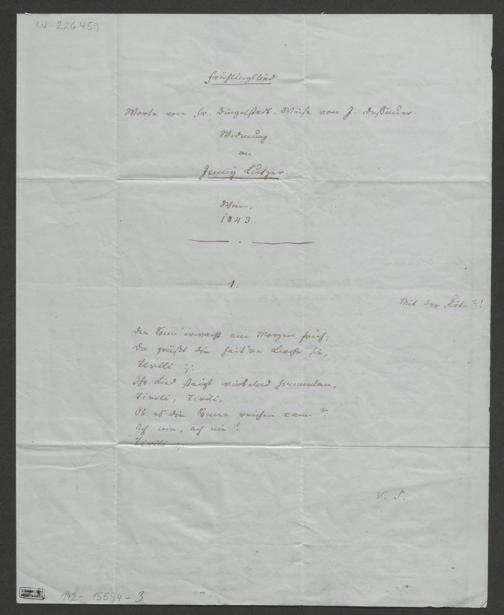 IN-226459
Frühlingslied
Worte von Fr. Dingelstedt. Weise von J. Dessauer.
Widmung
an
Jenny Lutzer.
Wien.
1843.
1.
Mit der Flöte!
Die Sonn' erwacht am Morgen früh;
Da grüßt die Lerche sie,
Tirili ;:
Ihr Lied steigt wirbelnd himmelan,
Tirili, Tirili.
Ob es die Sonne reichen kann?
Ach nie, ach nie!
Tirili ;:
V. S.
142-15594-3